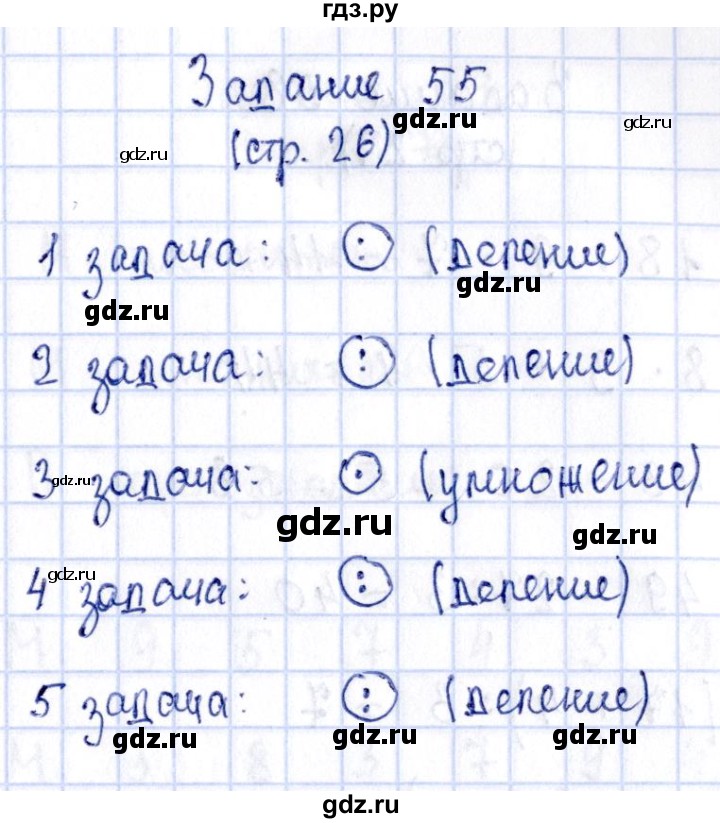 гдз.ру
Задание 55
gdz.ru
gdz.ru
gdz.ru
(стр. 26)
1 задача: : (деление)
gdz.ru
gdz.ru
2 задача: : (деление)
3 задача: · (умножение)
gdz.ru
gdz.ru
gdz.ru
4 задача: : (деление)
gdz.ru
5 задача: : (деление)
gdz.ru
gdz.ru
gdz.ru
gdz.ru